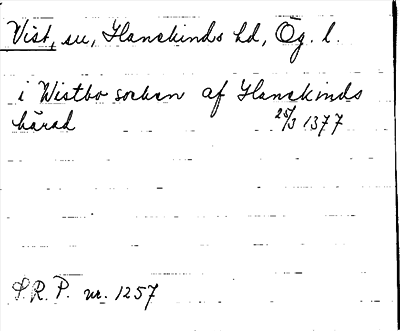 Vist, sn, Hanekinds hd, Ög. l.
i Wistbo socken af Hanekinds
härad 25/3 1377
S.R.P. nr. 1257